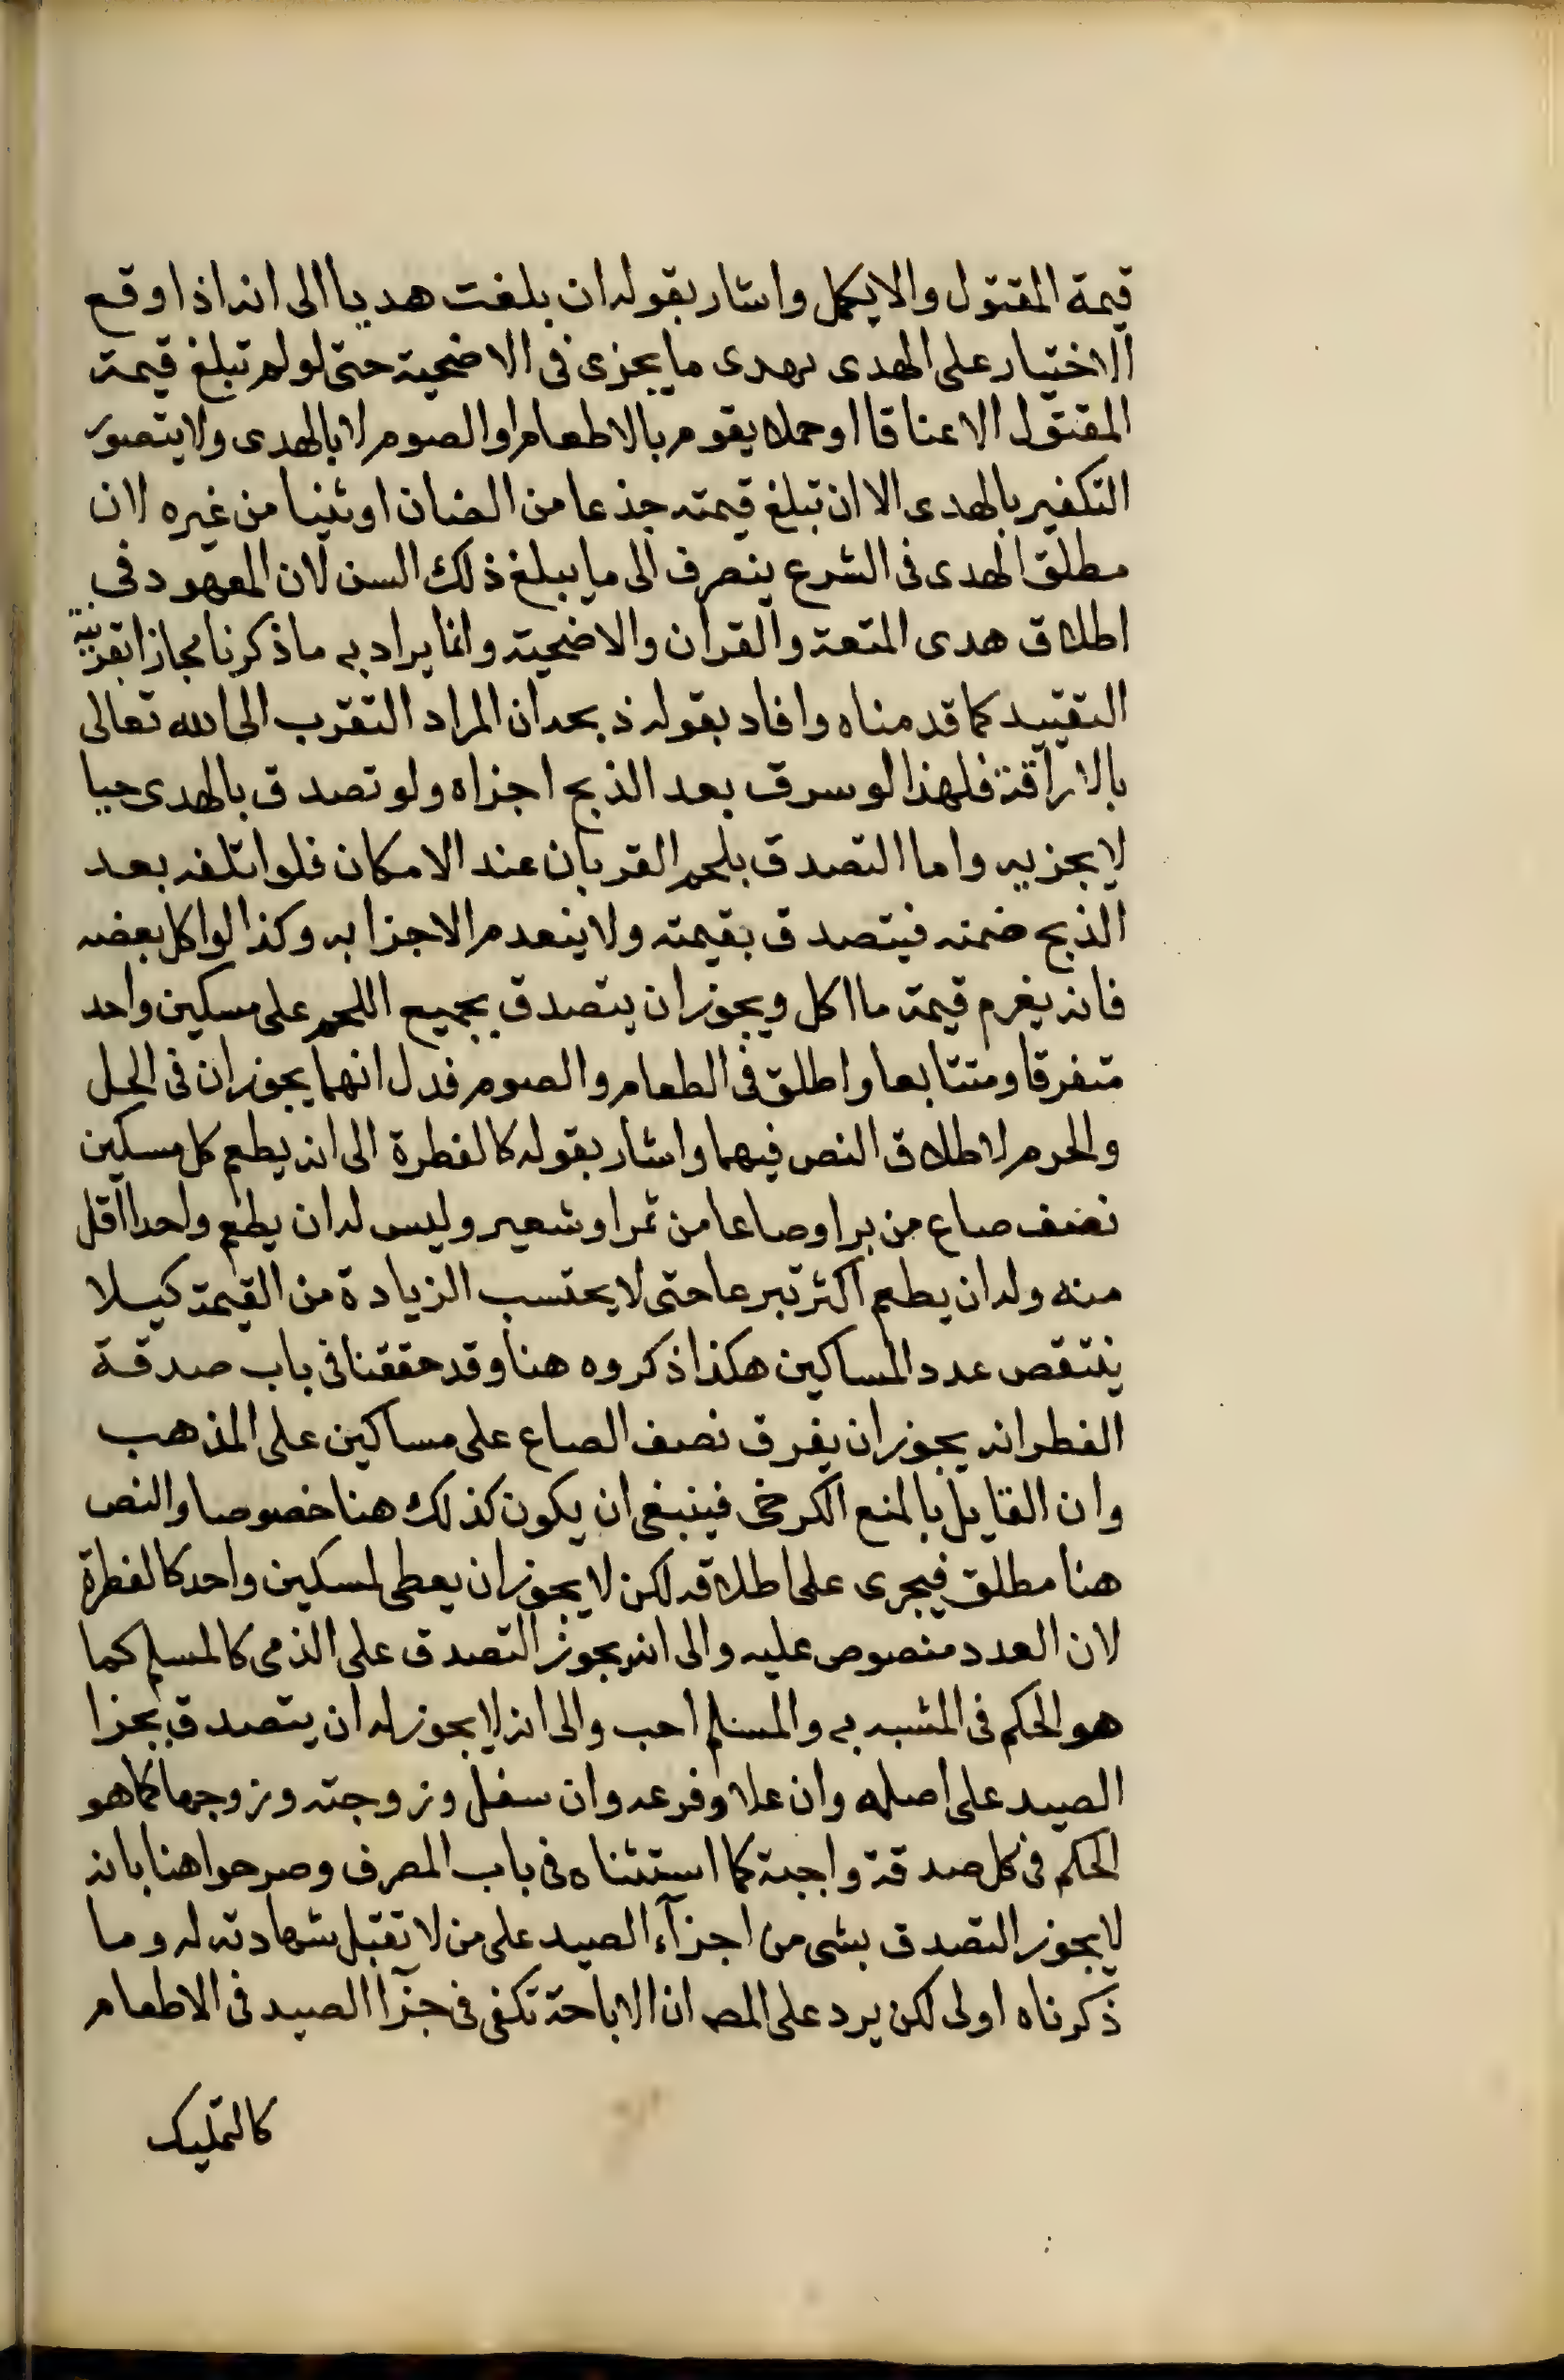 قيمة المقتول والا يكمل واشار بقوله ان بلغت هديا الى انه اذا وقع
الاختيار على الهدى يهدى ما يجزى فى الاضحية حتى لو لم تبلغ قيمة
المقتول الا عناقا او حملا يقوم بالاطعام او الصوم لا بالهدى ولا يتصور
التكفير بالهدى الا ان تبلغ قيمته جذعا من الضان او ثنيا من غيره لان
مطلق الهدى فى الشرع ينصرف الى ما يبلغ ذلك السن لان المعهود فى
اطلاق هدى المتعة والقران والاضحية وانما يراد به ما ذكرنا مجازا بقرينة
التقييد كما قدمناه وافاد بقوله ذبحه ان المراد التقرب الى الله تعالى
بالاراقة فلهذا لو سرق بعد الذبح اجزاه ولو تصدق بالهدى حيا
لا يجزيه واما التصدق بلحم القربان عند الامكان فلو اتلفه بعد
الذبح ضمنه فيتصدق بقيمته ولا ينعدم الاجزا به وكذا لو اكل بعضه
فانه يغرم قيمة ما اكل ويجوز ان يتصدق بجميع اللحم على مسكين واحد
متفرقا ومتتابعا واطلق فى الطعام والصوم فدل انهما يجوزان فى الحل
والحرم لاطلاق النص فيهما واشار بقوله كالفطرة الى انه يطعم كل مسكين
نصف صاع من بر او صاعا من تمر او شعير وليس له ان يطعم واحدا اقل
منه وله ان يطعم اكثر تبرعا حتى لا يحتسب الزيادة من القيمة كيلا
ينتقص عدد المساكين هكذا ذكروه هنا وقد حققنا فى باب صدقة
الفطر انه يجوز ان يفرق نصف الصاع على مساكين على المذهب
وان القايل بالمنع الكرخى فينبغى ان يكون كذلك هنا خصوصا والنص
هنا مطلق فيجرى على اطلاقه لكن لا يجوز ان يعطى لمسكين واحد كالفطرة
لان العدد منصوص عليه والى انه يجوز التصدق على الذمى كالمسلم كما
هو الحكم فى المشبه به والمسلم احب والى انه لا يجوز له ان يتصدق بجزا
الصيد على اصله وان علا وفرعه وان سفل وزوجته وزوجها كما هو
الحكم فى كل صدقة واجبة كما استثناه فى باب المصرف وصرحوا هنا بانه
لا يجوز التصدق بشى من اجزآء الصيد على من لا تقبل شهادته له وما
ذكرناه اولى لكن يرد على المصـ ان الاباحة تكفى فى جزآ الصيد فى الاطعام
كالتمليك